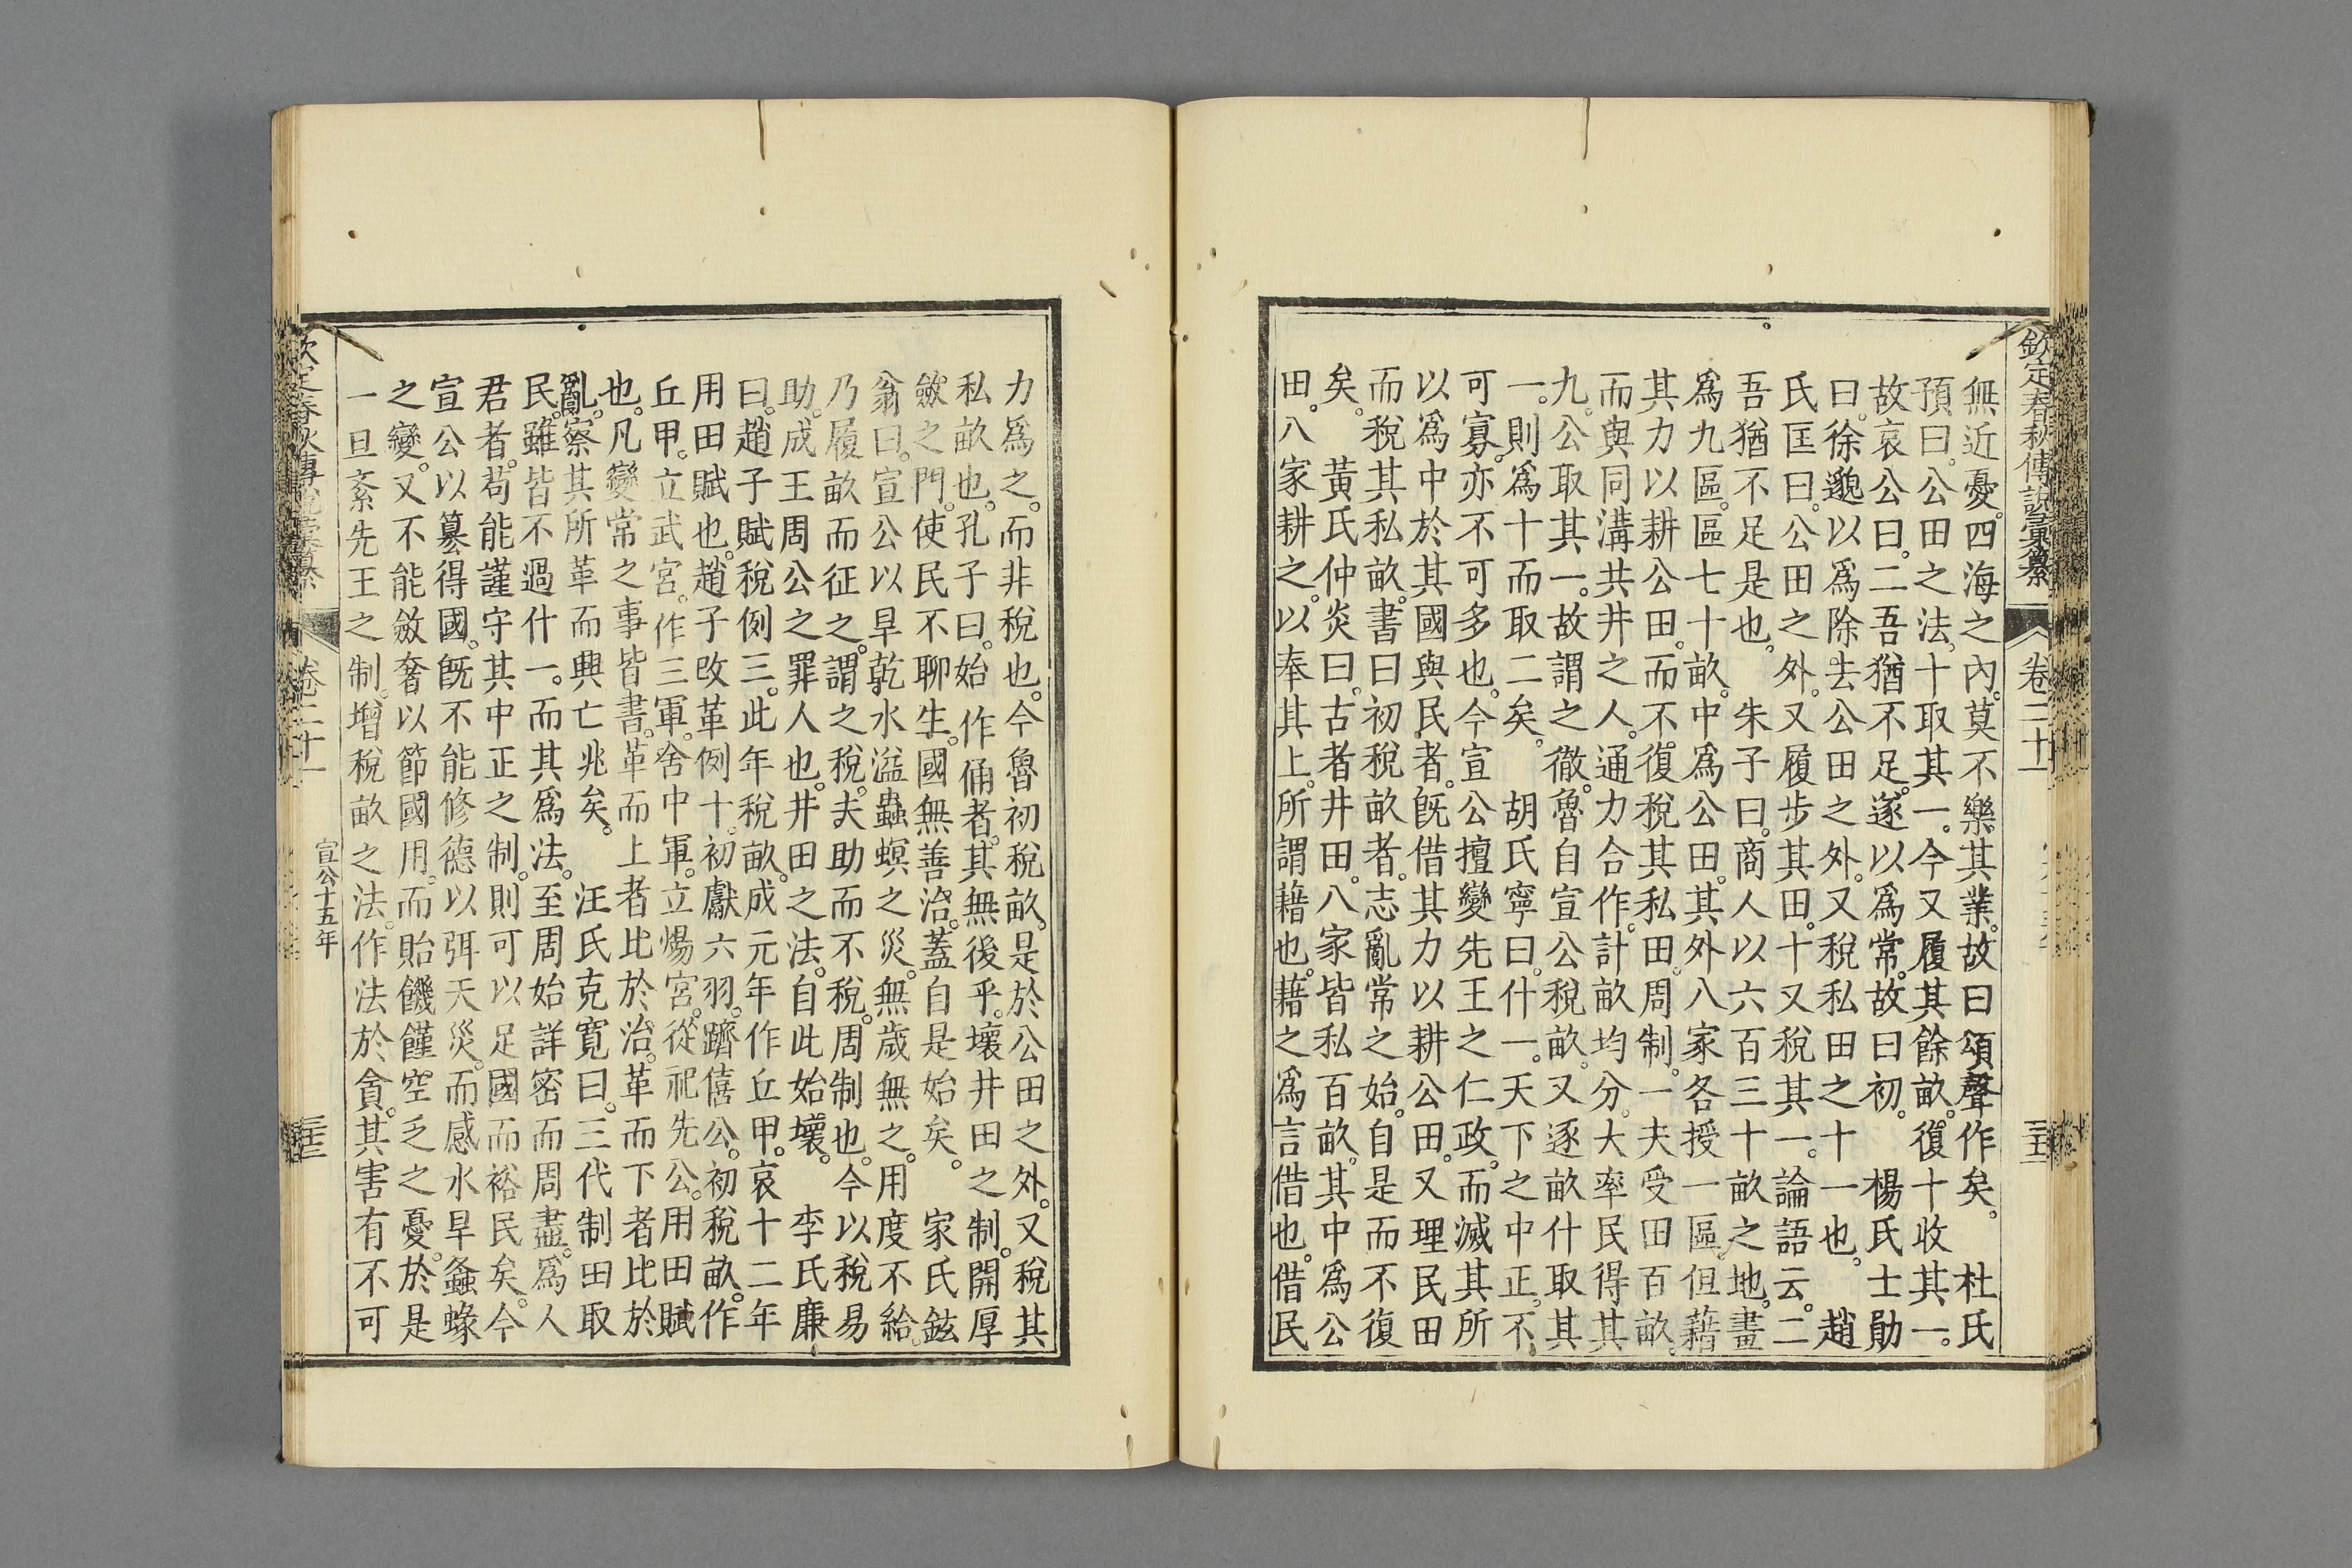 欽定春秋傳說彙纂
卷二十一
無近憂。四海之內。莫不樂其業。故曰頌聲作矣。杜氏
預曰。公田之法。十取其一。今又履其餘畝。復十收其一。
故哀公曰。二吾猶不足。遂以爲常。故曰初。楊氏士勛
曰。徐邈以爲除去公田之外。又稅私田之十一也。趙
氏匡曰。公田之外。又履步其田。十又稅其一。論語云。二
吾猶不足是也。朱子曰。商人以六百三十畝之地。畫
爲九區。區七十畝。中爲公田。其外八家各授一區。但藉
其力以耕公田。而不復稅其私田。周制。一夫受田百畝。
而與同溝共井之人。通力合作。計畝均分。大率民得其
九。公取其一。故謂之徹。魯自宣公稅畝。又逐畝什取其
一。則爲十而取二矣。胡氏寧曰。什一。天下之中正。不
可寡。亦不可多也。今宣公擅變先王之仁政。而滅其所
以爲中於其國與民者。旣借其力以耕公田。又理民田
而稅其私畝。書曰初稅畝者。志亂常之始。自是而不復
矣。黃氏仲炎曰。古者井田。八家皆私百畝。其中爲公
田。八家耕之。以奉其上。所謂藉也。藉之爲言借也。借民
力爲之。而非稅也。今魯初稅畝。是於公田之外。又稅其
私畝也。孔子曰。始作俑者。其無後乎。壞井田之制。開厚
斂之門。使民不聊生。國無善治。蓋自是始矣。家氏鉉
翁曰。宣公以旱乾水溢蟲螟之災。無歲無之。用度不給。
乃履畝而征之。謂之稅。夫助而不稅。周制也。今以稅易
助。成王周公之罪人也。井田之法。自此始壞。李氏廉
曰。趙子賦稅例三。此年稅畝。成元年作丘甲。哀十二年
用田賦也。趙子改革例十。初獻六羽。躋僖公。初稅畝。作
丘甲。立武宮。作三軍。舍中軍。立煬宮。從祀先公。用田賦
也。凡變常之事皆書。革而上者比於治。革而下者比於
亂。察其所革而興亡兆矣。汪氏克寬曰。三代制田取
民。雖皆不過什一。而其爲法。至周始詳密而周盡。爲人
君者。苟能謹守其中正之制。則可以足國而裕民矣。今
宣公以簒得國。旣不能修德以弭天災。而感水旱螽蝝
之變。又不能斂奢以節國用。而貽饑饉空乏之憂。於是
一旦紊先王之制。增稅畝之法。作法於貪。其害有不可
宣公十五年
卷二十一